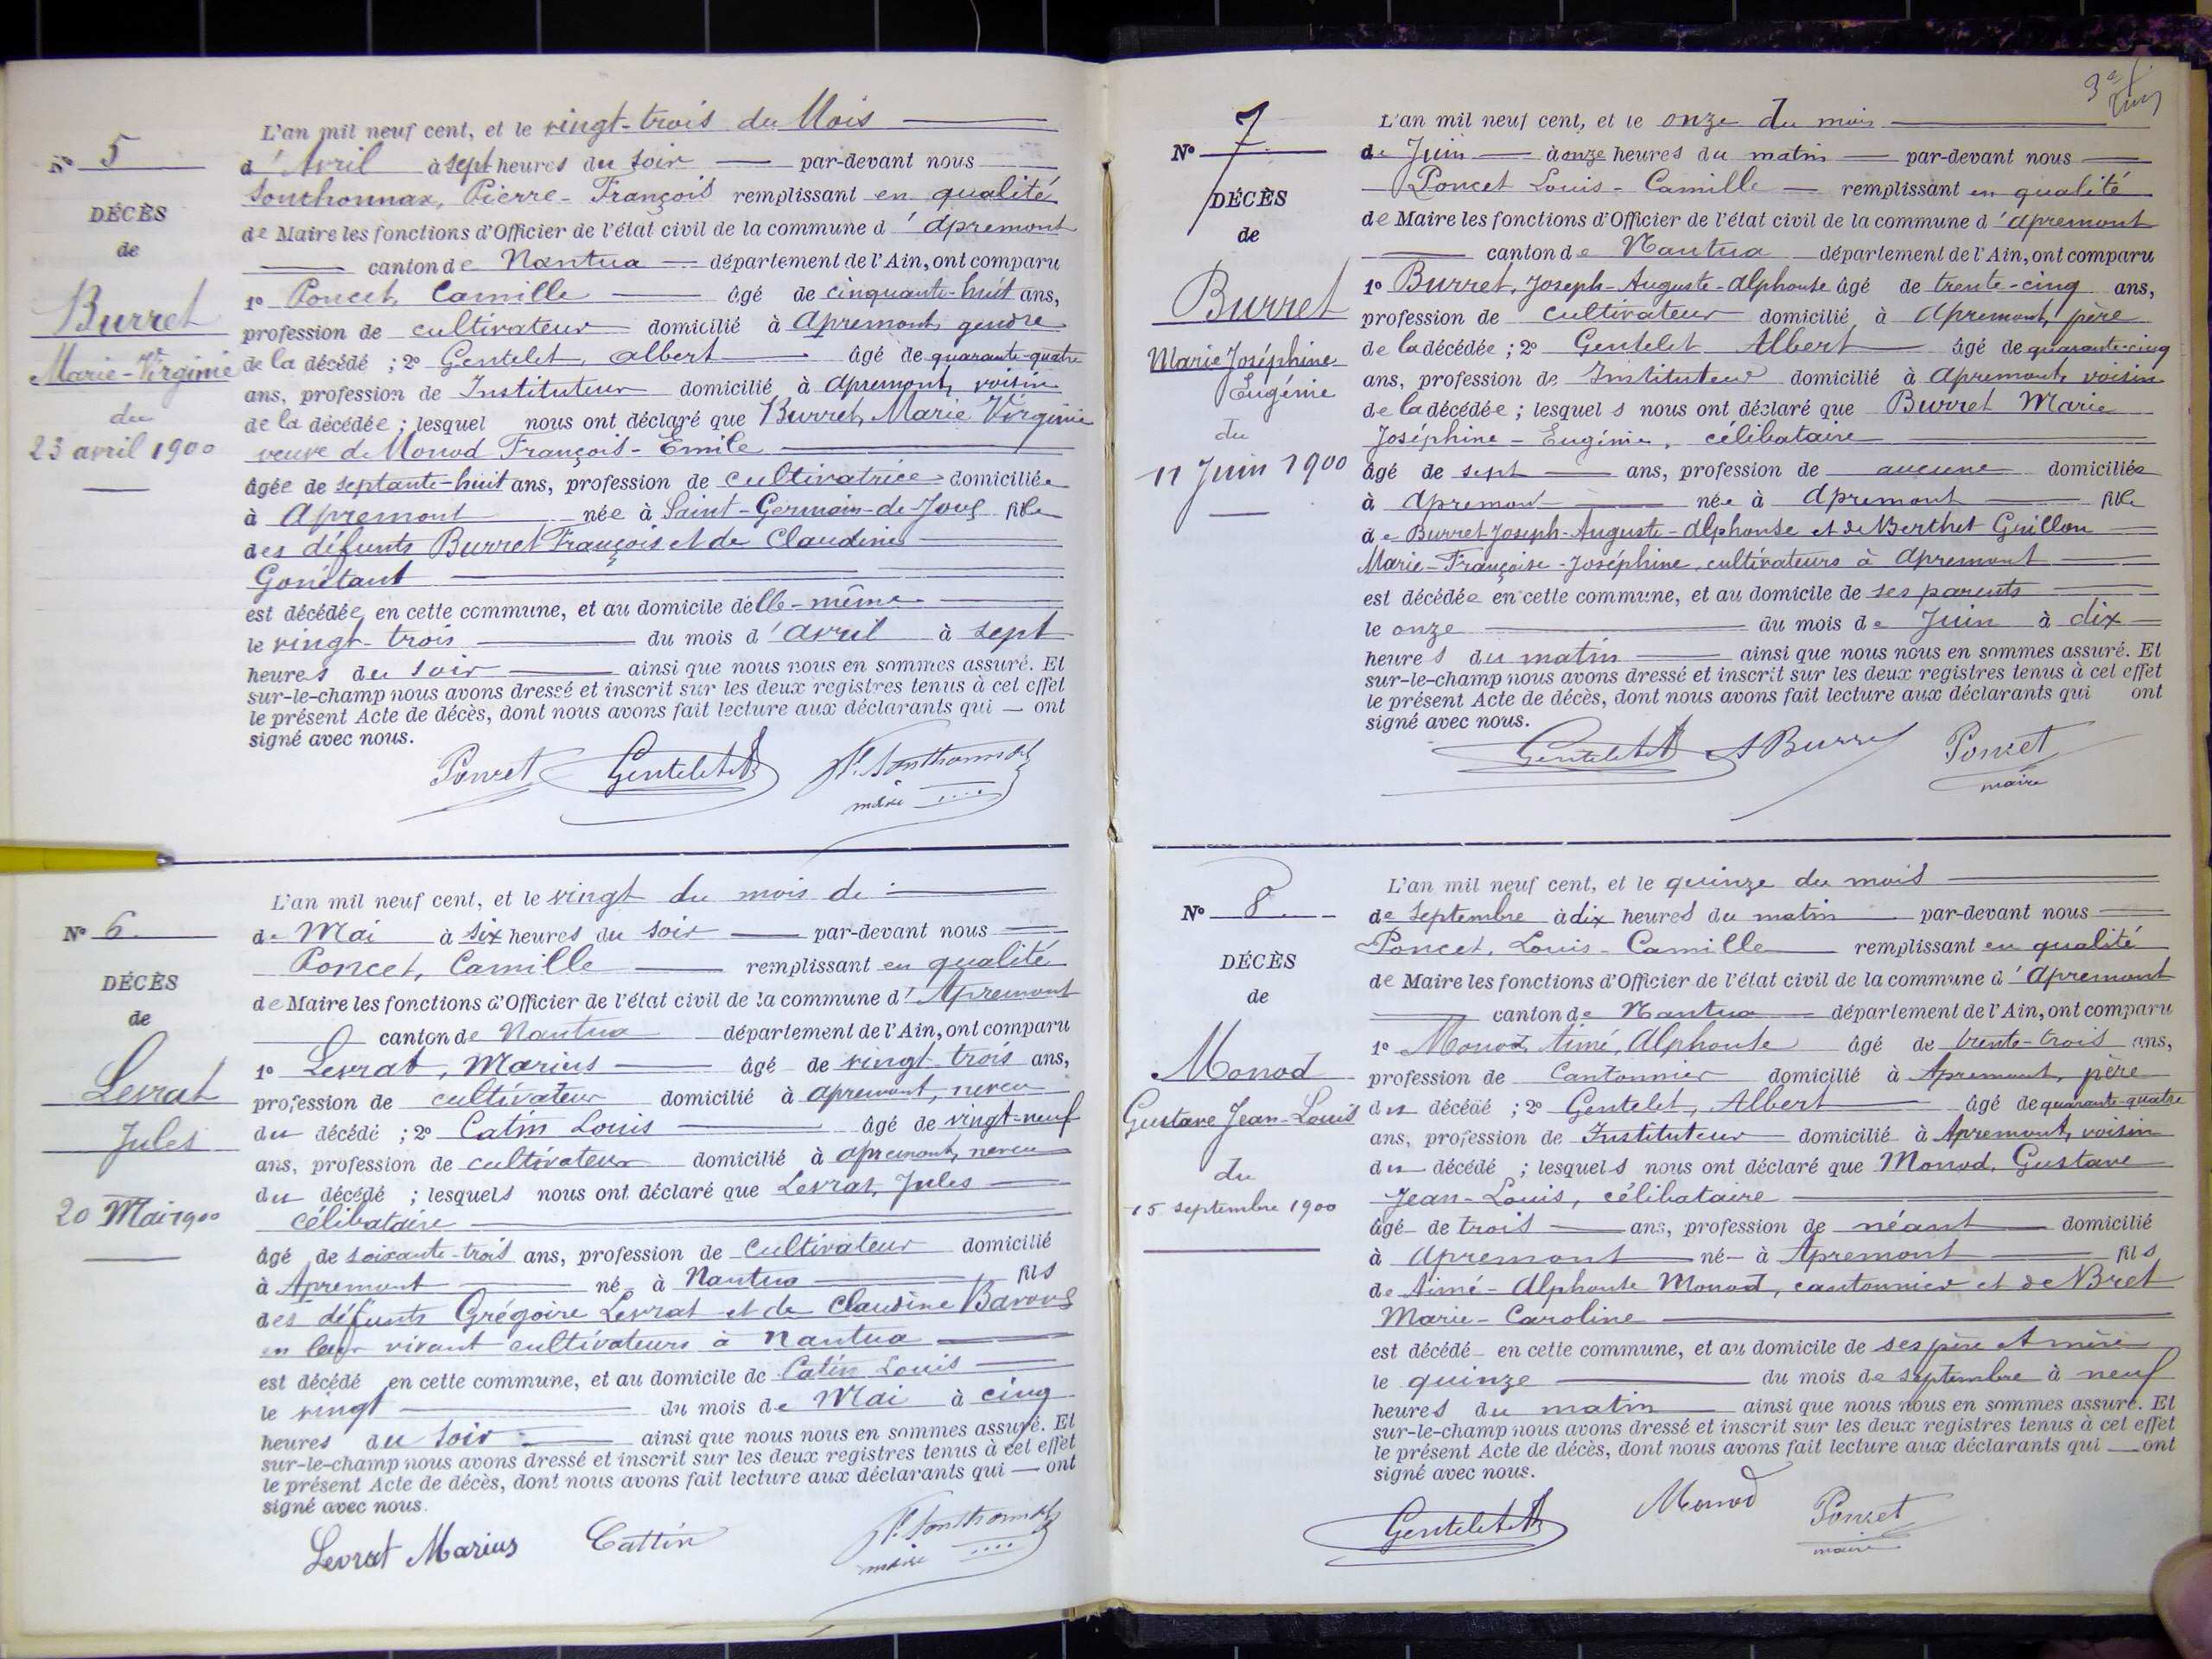 L'an mil neuf cent, et le vingt-trois du Mois
N° 5
d'Avril à sept heures du soir par-devant nous
Sonthonnax, Pierre-François remplissant en qualité
DÉCÈS
de Maire les fonctions d'Officier de l'état civil de la commune d'Apremont
de
canton de Nantua département de l'Ain, ont comparu
1° Poncet, Camille âgé de cinquante-huit ans,
Burret
profession de cultivateur domicilié à Apremont, gendre
Marie-Virginie
de la décédé ; 2° Gentelet, Albert âgé de quarante-quatre
ans, profession de Instituteur domicilié à Apremont, voisin
du
de la décédée ; lesquel nous ont déclaré que Burret, Marie Virginie
23 avril 1900
veuve de Monod François-Emile
âgée de septante-huit ans, profession de cultivatrice domiciliée
à Apremont née à Saint-Germain-de-Joux fille
des défunts Burret François et de Claudine
Gonétant
est décédée en cette commune, et au domicile d'elle-même
le vingt-trois du mois d'avril à sept
heures du soir ainsi que nous nous en sommes assuré. Et
sur-le-champ nous avons dressé et inscrit sur les deux registres tenus à cet effet
le présent Acte de décès, dont nous avons fait lecture aux déclarants qui — ont
signé avec nous.
Poncet Gentelet A P. Sonthonnax
maire
L'an mil neuf cent, et le vingt du mois de
N° 6
de Mai à six heures du soir par-devant nous
Poncet, Camille remplissant en qualité
DÉCÈS
de Maire les fonctions d'Officier de l'état civil de la commune d'Apremont
de
canton de Nantua département de l'Ain, ont comparu
1° Levrat, Marius âgé de vingt-trois ans,
Levrat
profession de cultivateur domicilié à Apremont, neveu
Jules
du décédé ; 2° Catin Louis âgé de vingt-neuf
ans, profession de cultivateur domicilié à Apremont, neveu
20 Mai 1900
du décédé ; lesquels nous ont déclaré que Levrat, Jules
célibataire
âgé de soixante-trois ans, profession de cultivateur domicilié
à Apremont né à Nantua fils
des défunts Grégoire Levrat et de Claudine
en leur vivant cultivateurs à Nantua
est décédé en cette commune, et au domicile de Catin Louis
le vingt du mois de Mai à cinq
heures du soir ainsi que nous nous en sommes assuré. Et
sur-le-champ nous avons dressé et inscrit sur les deux registres tenus à cet effet
le présent Acte de décès, dont nous avons fait lecture aux déclarants qui — ont
signé avec nous.
Levrat Marius Cattin P. Sonthonnax
maire
3e
L'an mil neuf cent, et le onze du mois
N° 7
de Juin à onze heures du matin par-devant nous
Poncet Louis-Camille remplissant en qualité
DÉCÈS
de Maire les fonctions d'Officier de l'état civil de la commune d'Apremont
de
canton de Nantua département de l'Ain, ont comparu
Burret
1° Burret, Joseph-Auguste-Alphonse âgé de trente-cinq ans,
profession de cultivateur domicilié à Apremont, père
Marie Joséphine
de la décédée ; 2° Gentelet Albert âgé de quarante-cinq
Eugénie
ans, profession de Instituteur domicilié à Apremont, voisin
de la décédée ; lesquels nous ont déclaré que Burret Marie
du
Joséphine-Eugénie, célibataire
11 Juin 1900
âgé de sept ans, profession de aucune domiciliée
à Apremont née à Apremont fille
de Burret Joseph-Auguste-Alphonse et de Berthet Guillon
Marie-Françoise-Joséphine, cultivateurs à Apremont
est décédée en cette commune, et au domicile de ses parents
le onze du mois de Juin à dix
heures du matin ainsi que nous nous en sommes assuré. Et
sur-le-champ nous avons dressé et inscrit sur les deux registres tenus à cet effet
le présent Acte de décès, dont nous avons fait lecture aux déclarants qui ont
signé avec nous.
Gentelet A A Burret Poncet
maire
L'an mil neuf cent, et le quinze du mois
N° 8
de septembre à dix heures du matin par-devant nous
Poncet, Louis-Camille remplissant en qualité
DÉCÈS
de Maire les fonctions d'Officier de l'état civil de la commune d'Apremont
de
canton de Nantua département de l'Ain, ont comparu
1° Monod, Aimé, Alphonse âgé de trente-trois ans,
Monod
profession de Cantonnier domicilié à Apremont, père
Gustave Jean-Louis
du décédé ; 2° Gentelet, Albert âgé de quarante-quatre
ans, profession de Instituteur domicilié à Apremont, voisin
du
du décédé ; lesquels nous ont déclaré que Monod, Gustave
15 septembre 1900
Jean-Louis, célibataire
âgé de trois ans, profession de néant domicilié
à Apremont né à Apremont fils
de Aimé-Alphonse Monod, cantonnier et de Bret
Marie-Caroline
est décédé en cette commune, et au domicile de ses père et mère
le quinze du mois de septembre à neuf
heures du matin ainsi que nous nous en sommes assuré. Et
sur-le-champ nous avons dressé et inscrit sur les deux registres tenus à cet effet
le présent Acte de décès, dont nous avons fait lecture aux déclarants qui ont
signé avec nous.
Gentelet A Monod Poncet
maire